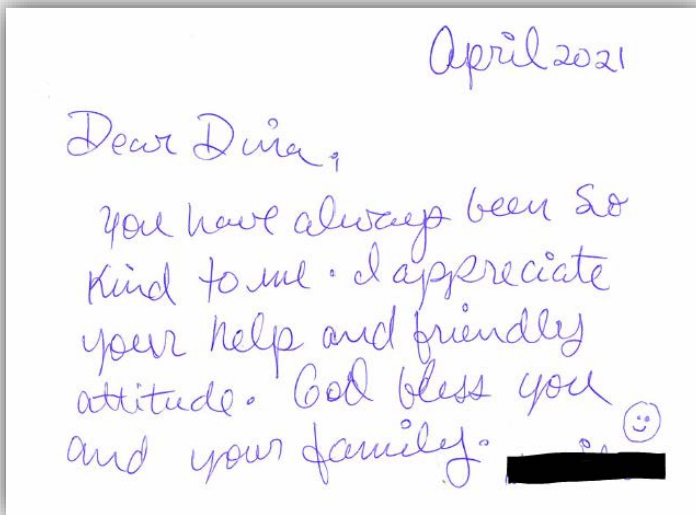 April 2021
Dear Dina,
you have always been so
kind to me. I appreciate
your help and friendly
attitude. God bless you
and your family.